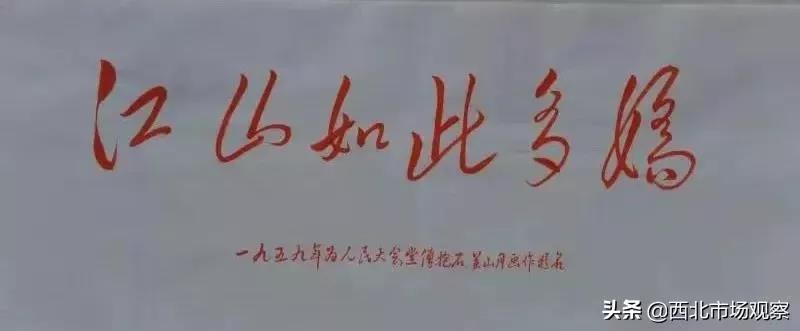 江山如此多娇
一九五九年为人民大会堂傅抱石关山月画作题名
头条 @西北市场观察